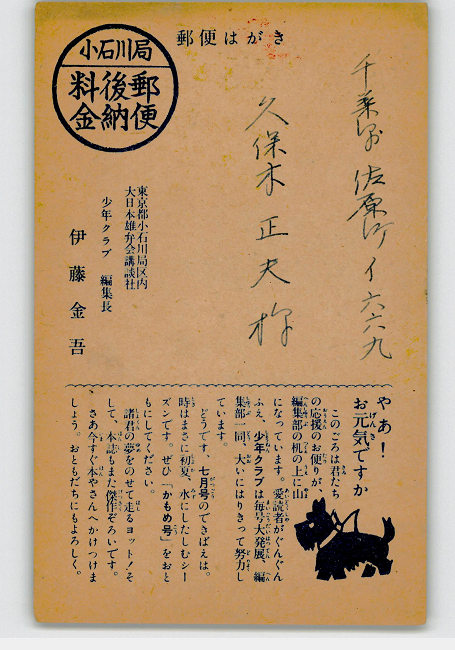 郵便はがき
小石川局
郵便
後納
料金
千葉県佐原町イ六六九
久保木正夫様
東京都小石川局区内
大日本雄弁会講談社
少年クラブ 編集長
伊藤金吾
やあ!
お元気ですか
このごろは君たち
の応援のお便りが、
編集部の机の上に山
になっています。愛読者がぐんぐん
ふえ、少年クラブは毎号大発展、編
集部一同、大いにはりきって努力し
ています。
どうです、七月号のできばえは。
時はまさに初夏、水にしたしむシー
ズンです。ぜひ「かもめ号」をおと
もにしてください。
諸君の夢をのせて走るヨット!そ
して、本誌もまた傑作ぞろいです。
さあ今すぐ本やさんへかけつけま
しょう。おともだちにもよろしく。